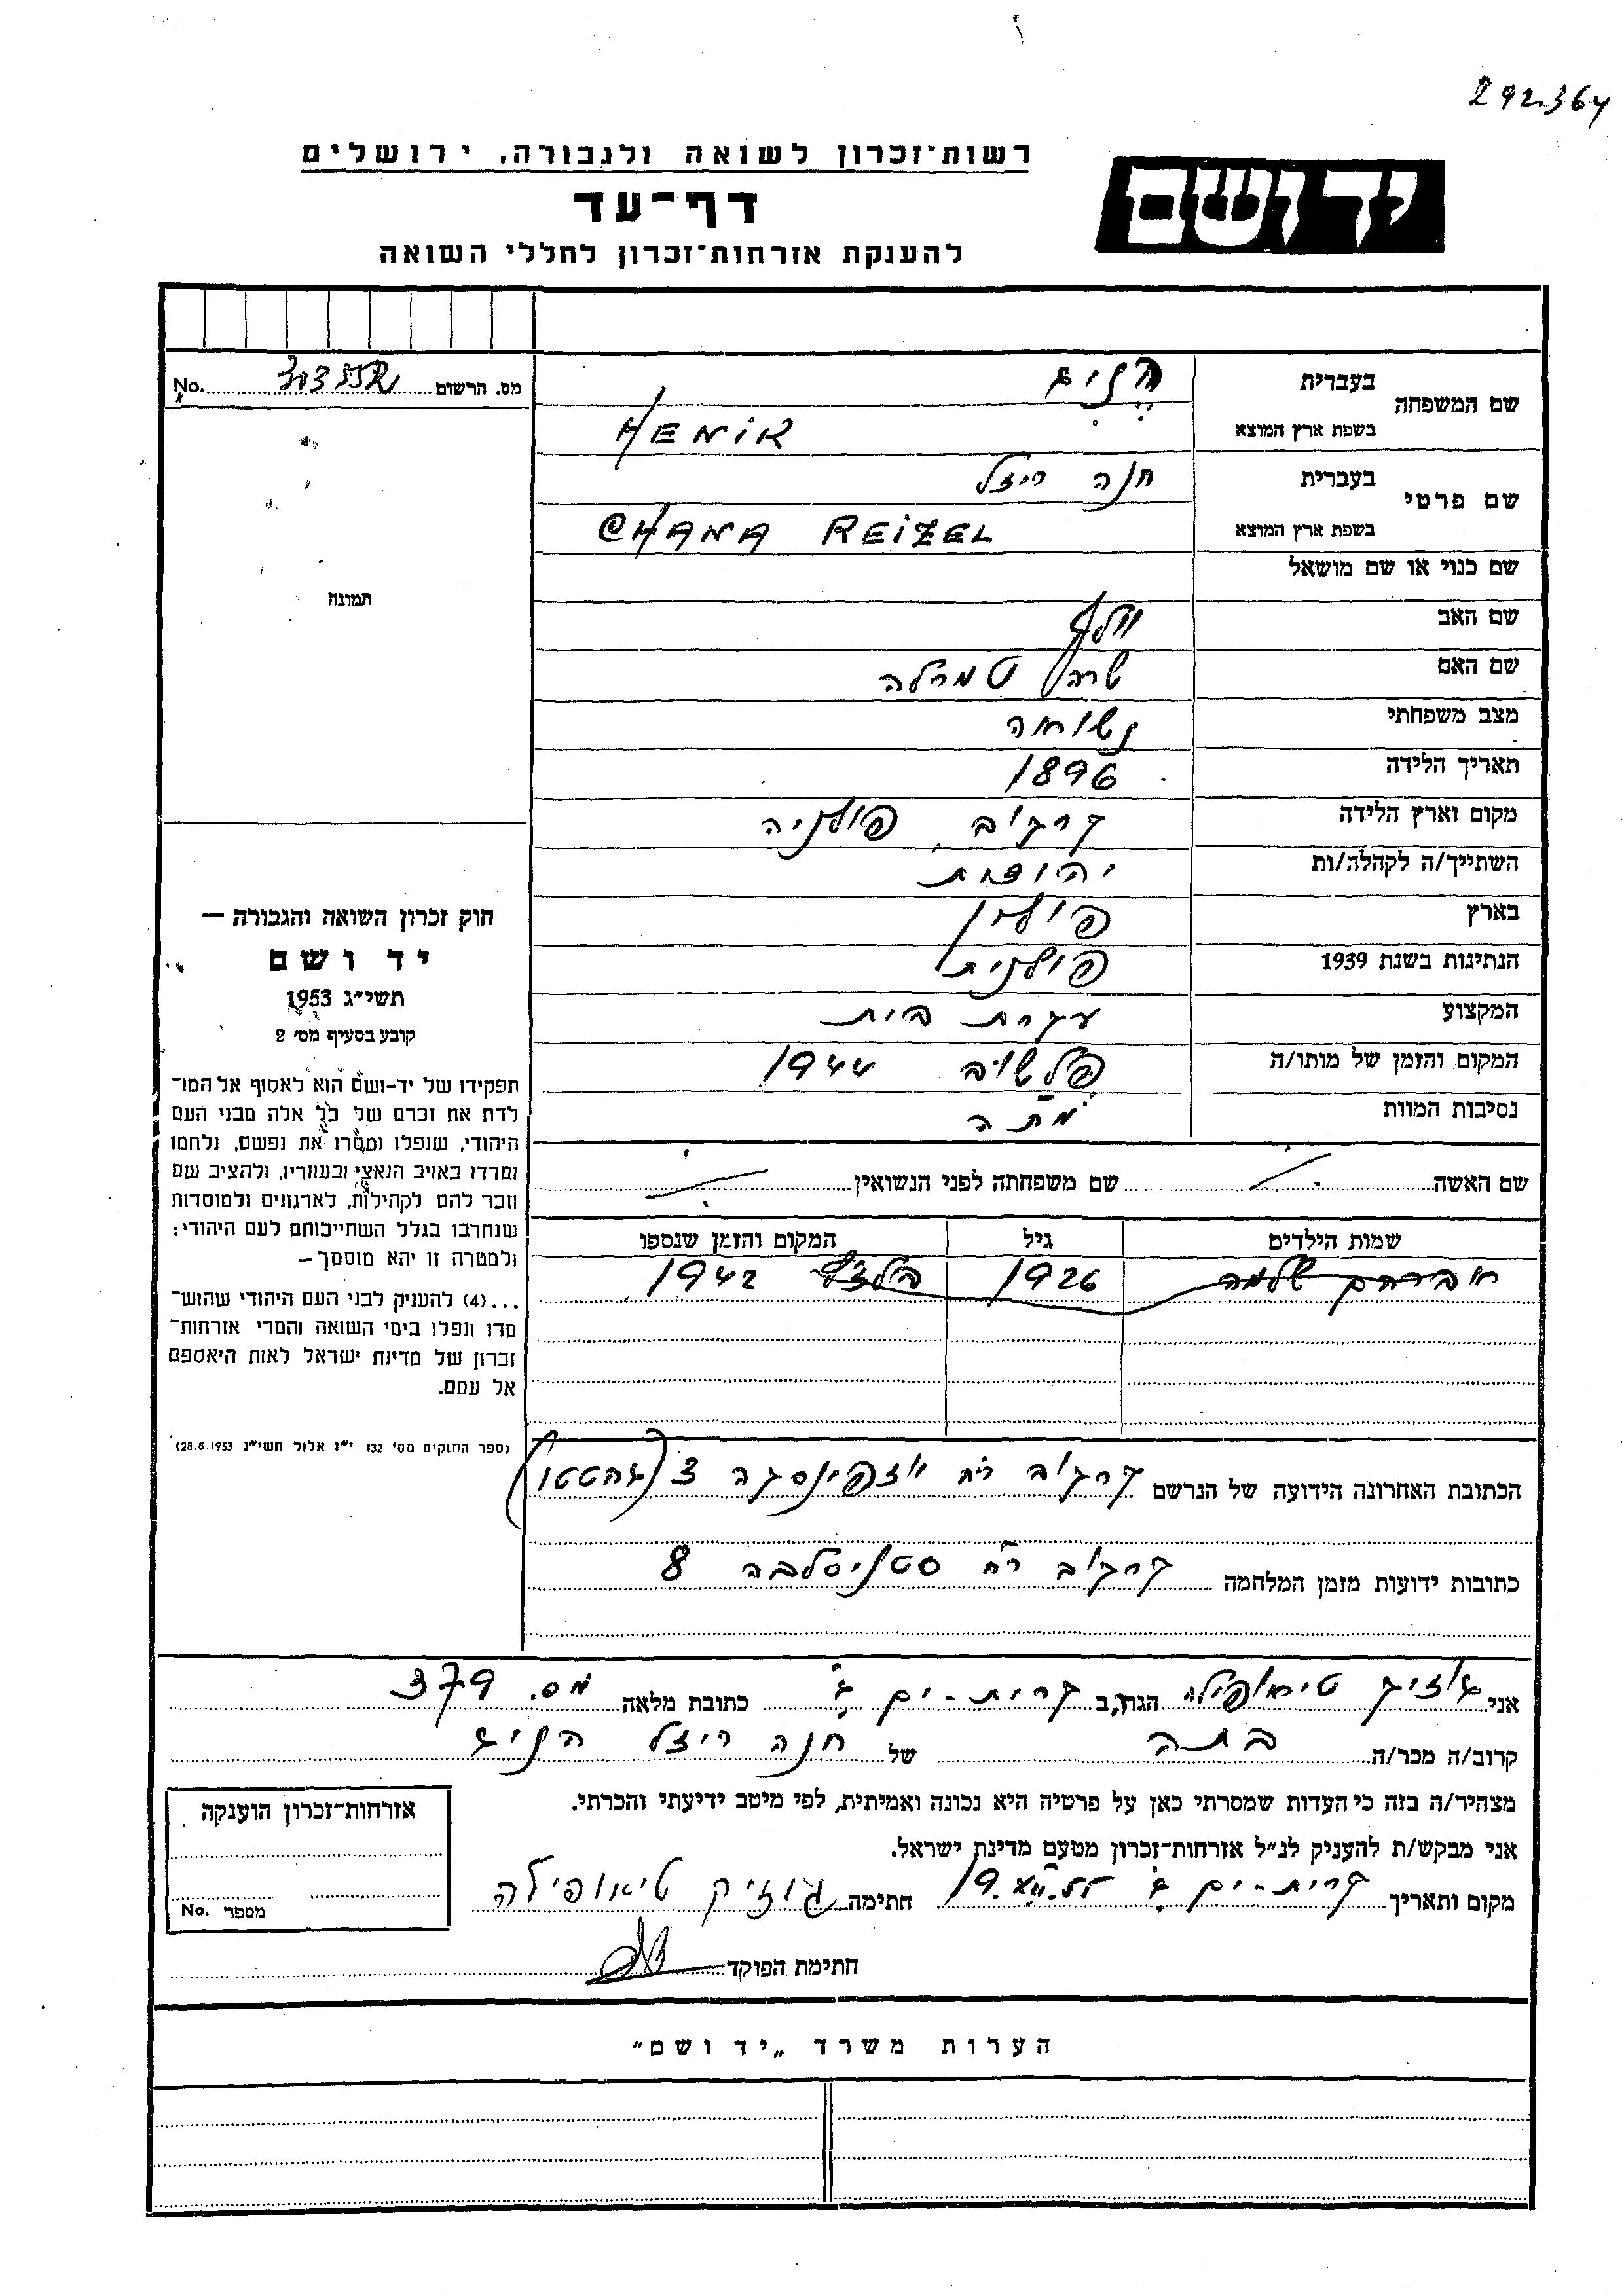 292364
רשות־זכרון לשואה ולגבורה, ירושלים
יד ושם
דף־עד
להענקת אזרחות־זכרון לחללי השואה
מס. הרשום No.
שם המשפחה
בעברית
בשפת ארץ המוצא HENIK
שם פרטי
בעברית חנה ריזל
בשפת ארץ המוצא CHANA REIZEL
שם כנוי או שם מושאל
שם האב וולף
שם האם שרה
מצב משפחתי נשואה
תאריך הלידה 1896
מקום וארץ הלידה קרקוב פולניה
השתייך/ה לקהלה/ות יהודית
בארץ פולין
הנתינות בשנת 1939 פולנית
המקצוע עקרת בית
המקום והזמן של מותו/ה פלשוב 1944
נסיבות המוות מתה
שם האשה שם משפחתה לפני הנשואין
שמות הילדים גיל המקום והזמן שנספו
אברהם שלמה 1926 בלז'ץ 1942
תמונה
חוק זכרון השואה והגבורה —
יד ושם
תשי״ג 1953
קובע בסעיף מס׳ 2
תפקידו של יד־ושם הוא לאסוף אל המו־
לדת את זכרם של כל אלה מבני העם
היהודי, שנפלו ומסרו את נפשם, נלחמו
ומרדו באויב הנאצי ובעוזריו, ולהציב שם
וזכר להם לקהילות, לארגונים ולמוסדות
שנחרבו בגלל השתייכותם לעם היהודי;
ולמטרה זו יהא מוסמך —
...(4) להענק לבני העם היהודי שהוש־
מדו ונפלו בימי השואה והמרי אזרחות־
זכרון של מדינת ישראל לאות היאספם
אל עמם.
(ספר החוקים מס׳ 132 י״ז אלול תשי״ג 28.8.1953)
הכתובת האחרונה הידועה של הנרשם קרקוב רח יוזפינסקה 3 (בהטטו)
כתובות ידועות מזמן המלחמה קרקוב רח סטניסלבה 8
אני גוזיק טיאופילה הגר/ה ב קרית-ים ג' כתובת מלאה מס. 379
קרוב/ה מכר/ה בתה של חנה ריזל הניק
מצהיר/ה בזה כי העדות שמסרתי כאן על פרטיה היא נכונה ואמיתית, לפי מיטב ידיעתי והכרתי.
אני מבקש/ת להעניק לנ״ל אזרחות־זכרון מטעם מדינת ישראל.
מקום ותאריך קרית-ים ג' חתימה גוזיק טיאופילה
חתימת הפוקד
אזרחות־זכרון הוענקה
מספר No.
הערות משרד „יד ושם״